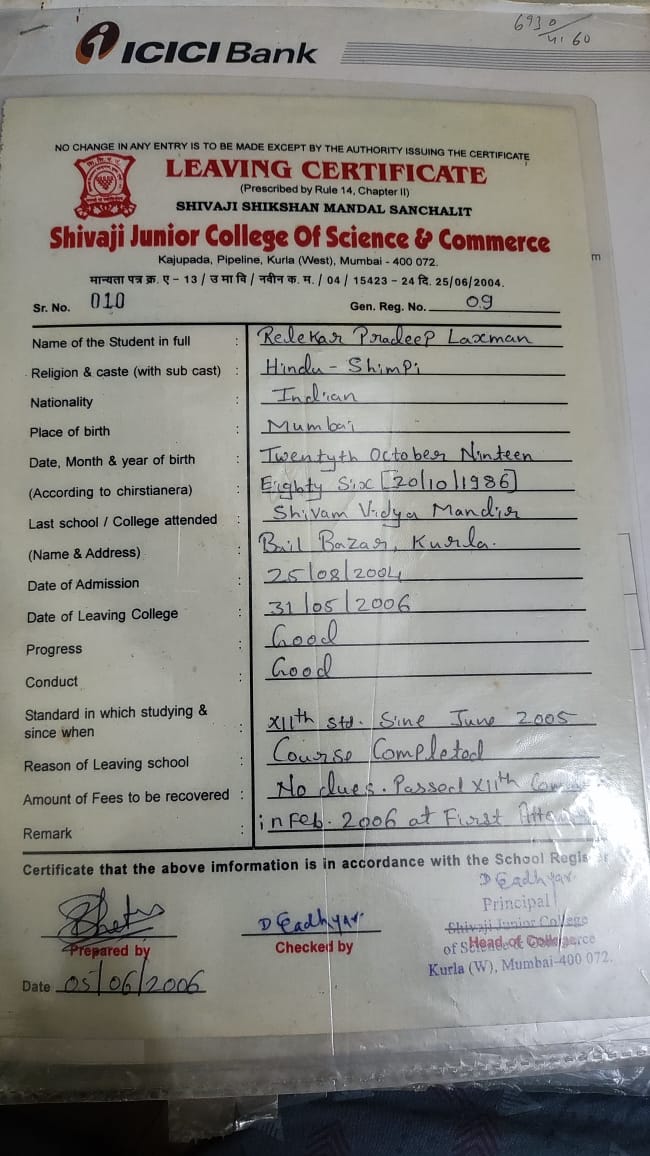 6930/41.60
ICICI Bank
NO CHANGE IN ANY ENTRY IS TO BE MADE EXCEPT BY THE AUTHORITY ISSUING THE CERTIFICATE
LEAVING CERTIFICATE
(Prescribed by Rule 14, Chapter II)
SHIVAJI SHIKSHAN MANDAL SANCHALIT
Shivaji Junior College Of Science & Commerce
Kajupada, Pipeline, Kurla (West), Mumbai - 400 072.
मान्यता पत्र क्र. ए - 13 / उ मा वि / नवीन क. म. / 04 / 15423 - 24 दि. 25/06/2004.
Sr. No. 010 Gen. Reg. No. 09
Name of the Student in full : Relekar Pradeep Laxman
Religion & caste (with sub cast) : Hindu - Shimpi
Nationality : Indian
Place of birth : Mumbai
Date, Month & year of birth : Twentyth October Ninteen
(According to chirstianera) : Eighty Six [20/10/1986]
Last school / College attended : Shivam Vidya Mandir
(Name & Address) : Bail Bazar, Kurla.
Date of Admission : 25/08/2004
Date of Leaving College : 31/05/2006
Progress : Good
Conduct : Good
Standard in which studying &
since when : XIIth std. Sine June 2005
Reason of Leaving school : Course Completed
Amount of Fees to be recovered : No dues. Passed XIIth
Remark : in Feb. 2006 at First
Certificate that the above imformation is in accordance with the School Register
D Gadhyar.
Principal
Shivaji Junior College
D Gadhyar.
Prepared by Checked by Head of College
Kurla (W), Mumbai-400 072.
Date 05/06/2006
m